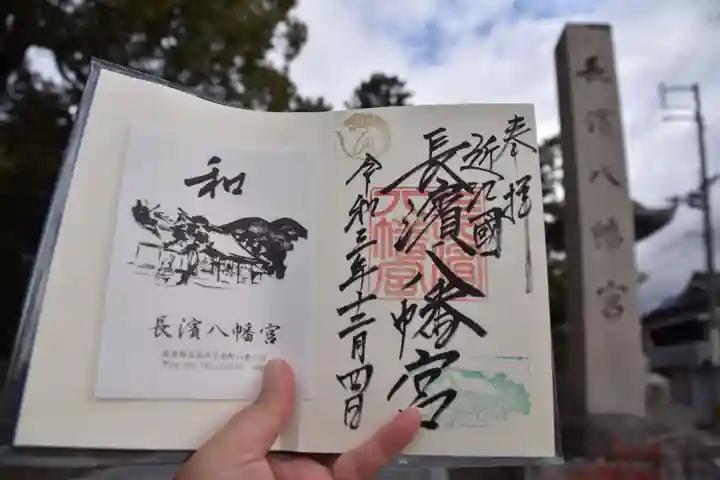 奉拝
近江國
長濱八幡宮
令和三年十二月四日
八幡宮
和
長濱八幡宮
長濱八幡宮